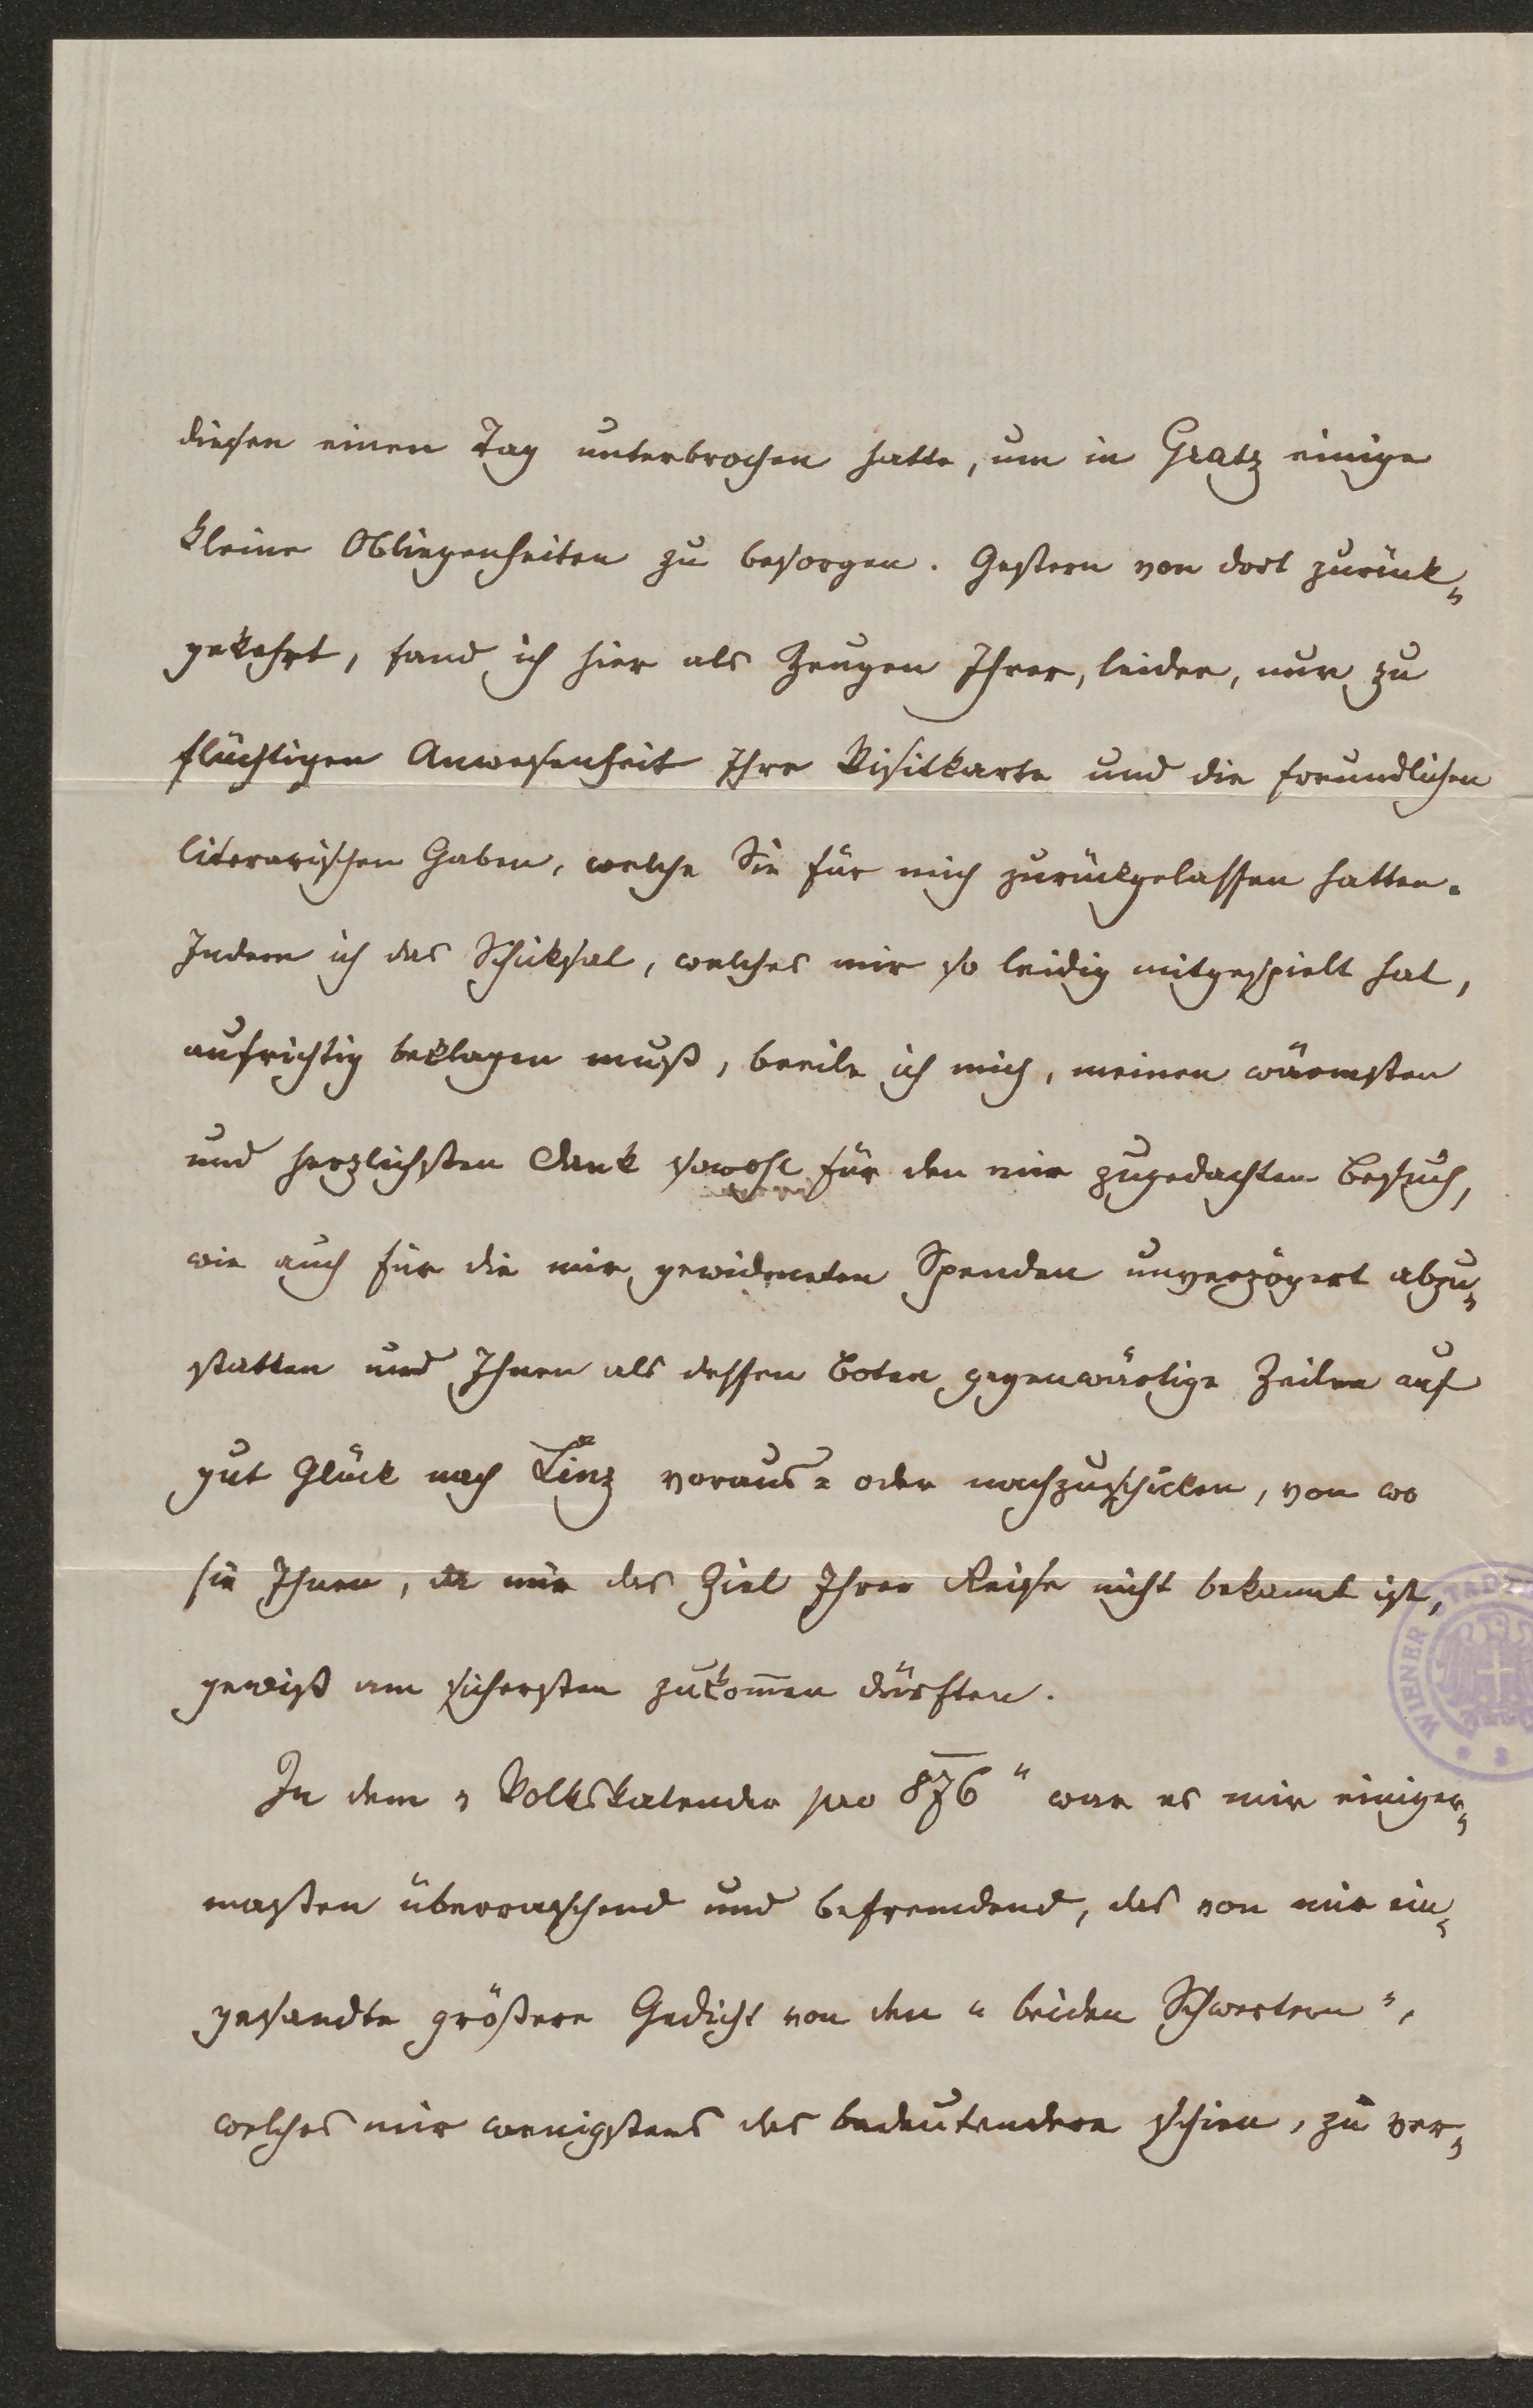 diesen einen Tag unterbrochen hatte, um in Gratz einige
kleine Obliegenheiten zu besorgen. Gestern von dort zurück-
gekehrt, fand ich hier als Zeugen Ihrer, leider, nur zu
flüchtigen Anwesenheit Ihre Visitkarte und die freundlichen
literarischen Gaben, welche Sie für mich zurückgelassen hatten.
Indem ich das Schicksal, welches mir so leidig mitgespielt hat,
aufrichtig beklagen muß, beeile ich mich, meinen wärmsten
und herzlichsten Dank sowohl für den mir zugedachten Besuch,
wie auch für die mir gewidmeten Spenden unverzögert abzu-
statten und Ihnen als dessen Boten gegenwärtige Zeilen auf
gut Glück nach Linz voraus- oder nachzuschicken, von wo
sie Ihnen, da mir das Ziel Ihrer Reise nicht bekannt ist,
gewiß am sichersten zukom̅en dürften.
In dem „Volkskalender pro 876“ war es mir einiger-
maßen überraschend und befremdend, das von mir ein-
gesandte größere Gedicht von den "beiden Schwestern",
welches mir wenigstens das bedeutendere schien, zu ver-
WIENER STADT